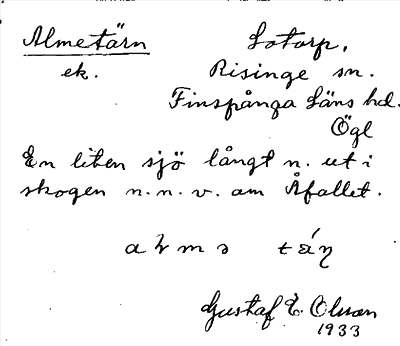 Almetärn Lotorp.
ek. Risinge sn.
Finspånga Läns hd.
Ögl
En liten sjö långt n. ut i
skogen n. n. v. om Åfallet.
Gustaf E. Olsson
1933